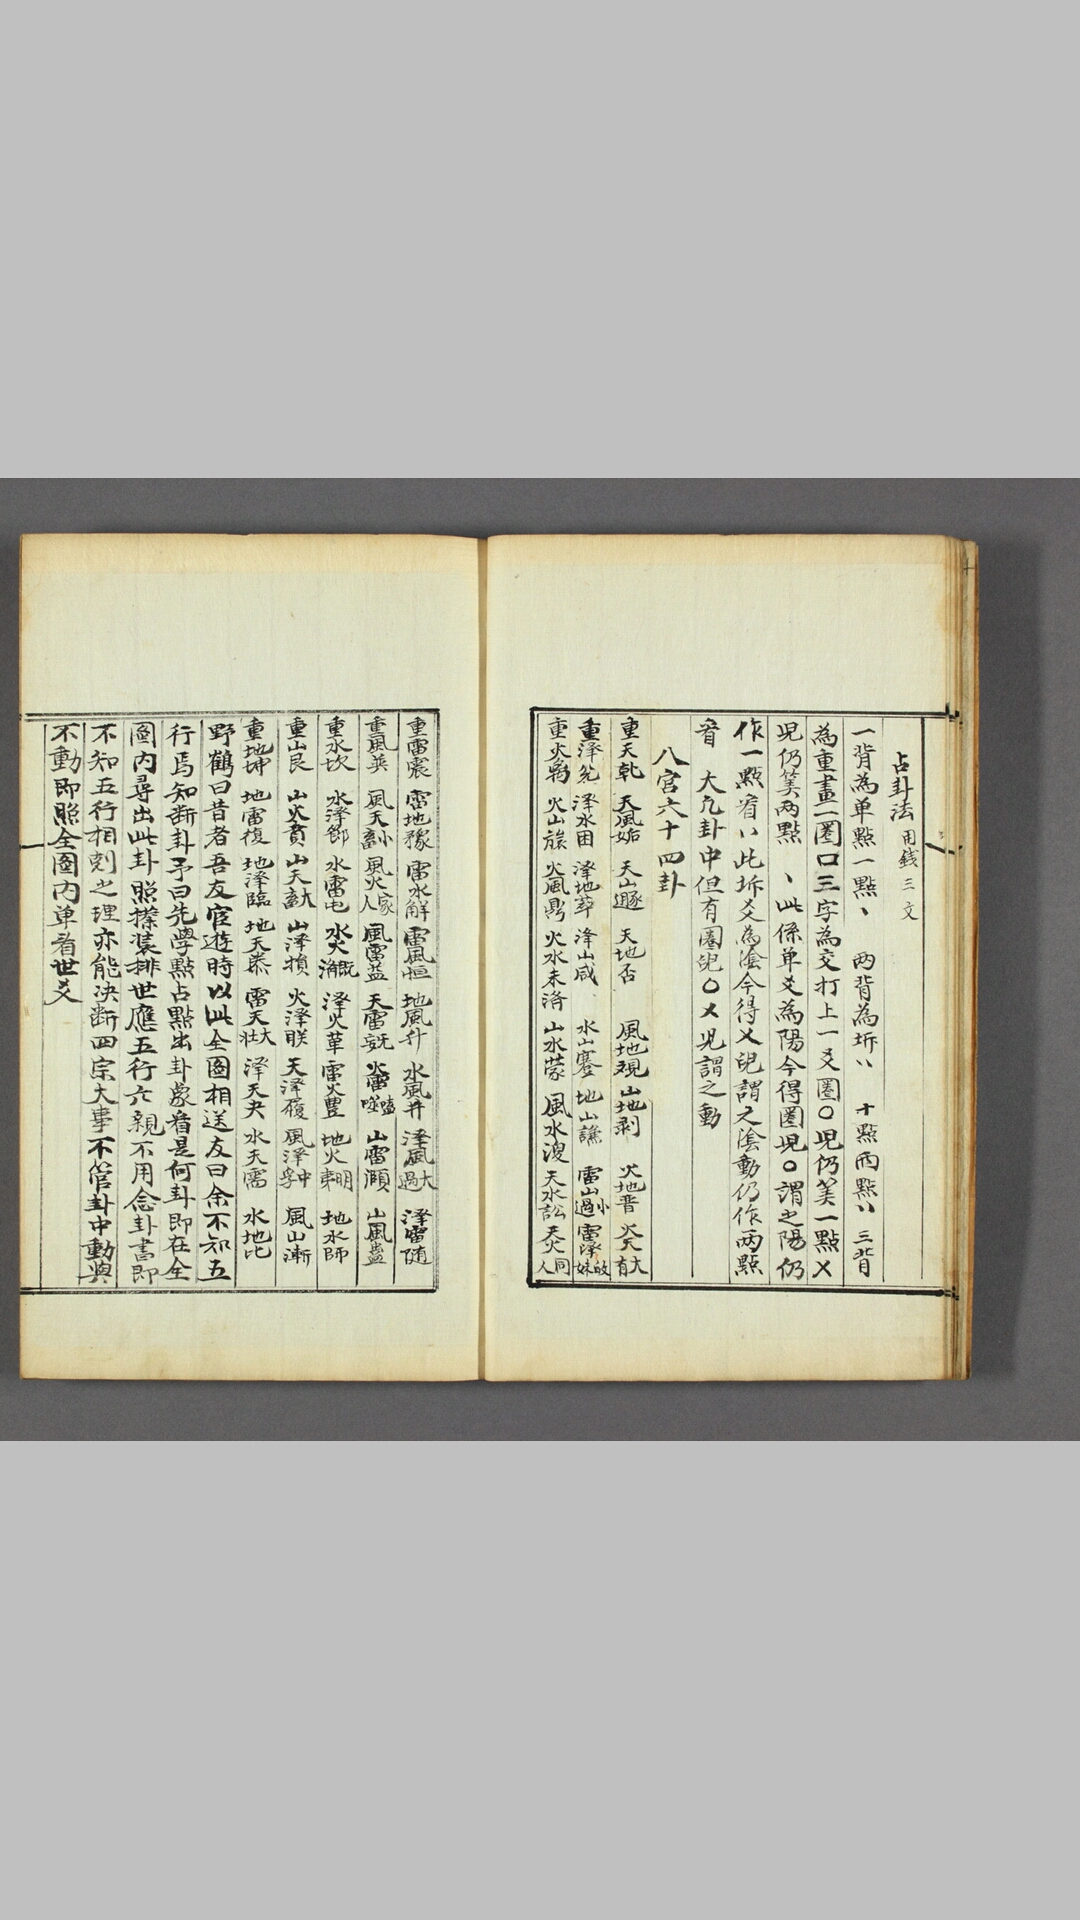 占卦法 用錢三文
一背為单點一點丶 两背為坼丷 十點两點丷 三背
為重畫一圈口三字為交打上一爻圈〇児仍筭一點乂
児仍筭两點 丶此係单爻為陽今得圈児〇謂之陽仍
作一點看丷此坼爻為隂今得乂児謂之隂動仍作两點
看 大凢卦中但有圏児〇乂児謂之動
八宫六十四卦
重天乹 天風姤 天山遯 天地否 風地观 山地剥 火地晋 火天大有
重泽兊 泽水困 泽地萃 泽山咸 水山蹇 地山謙 雷山小過 雷泽歸妹
重火离 火山旅 火風鼎 火水未濟 山水蒙 風水渙 天水訟 天火同人
重雷震 雷地豫 雷水解 雷風恒 地風升 水風井 泽風大過 泽雷随
重風巽 風天小畜 風火家人 風雷益 天雷无妄 火雷噬嗑 山雷頤 山風蠱
重水坎 水泽節 水雷屯 水火既濟 泽火革 雷火豊 地火明夷 地水師
重山艮 山火賁 山天大畜 山泽損 火泽睽 天泽履 風泽中孚 風山漸
重地坤 地雷復 地泽臨 地天泰 雷天大壮 泽天夬 水天需 水地比
野鶴曰昔者吾友官遊時以此全圖相送友曰余不知五
行焉知断卦予曰先學點占點出卦象看是何卦即在全
圖内尋出此卦照様装排世應五行六親不用念卦書即
不知五行相剋之理亦能决断四宗大事不管卦中動與
不動即照全圖内单看世爻